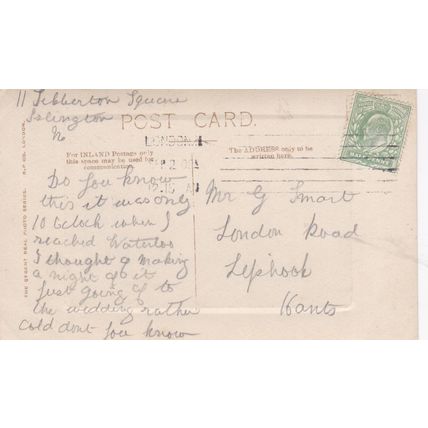 11 Tibberton Square
Islington
N
POST CARD.
LONDON. N
For INLAND Postage only
this space may be used for
communication.
The ADDRESS only to be
written here.
2 09
12.15 AM
Do you know
this it was only
10 Oclock when I
reached Waterloo
I thought of making
a night of it
just going of to
the wedding rather
cold dont you know
Mr G Smart
London Road
Liphook
Hants
THE REGENT REAL PHOTO SERIES. R.P. CO. LONDON.